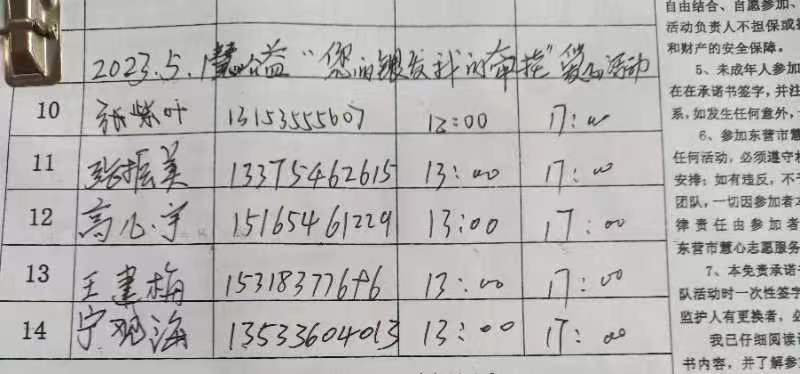 2023.5.1慧心公益“您的银发我的牵挂”爱心活动
10 张紫叶 13153555607 13:00 17:00
11 张振美 13375462615 13:00 17:00
12 高心宇 15165461229 13:00 17:00
13 王建梅 15318377646 13:00 17:00
14 宁观海 13533604013 13:00 17:00
自由结合、自愿参加、
活动负责人不担保或
和财产的安全保障。
5、未成年人参加
在在承诺书签字,并注
系,如发生任何意外,
6、参加东营市慧
任何活动,必须遵守
安排;如有违反,不
团队,一切因参加者
律责任由参加者
东营市慧心志愿服务
7、本免责承诺
队活动时一次性签字
监护人有更换者,必
我已仔细阅读
书内容,并了解参